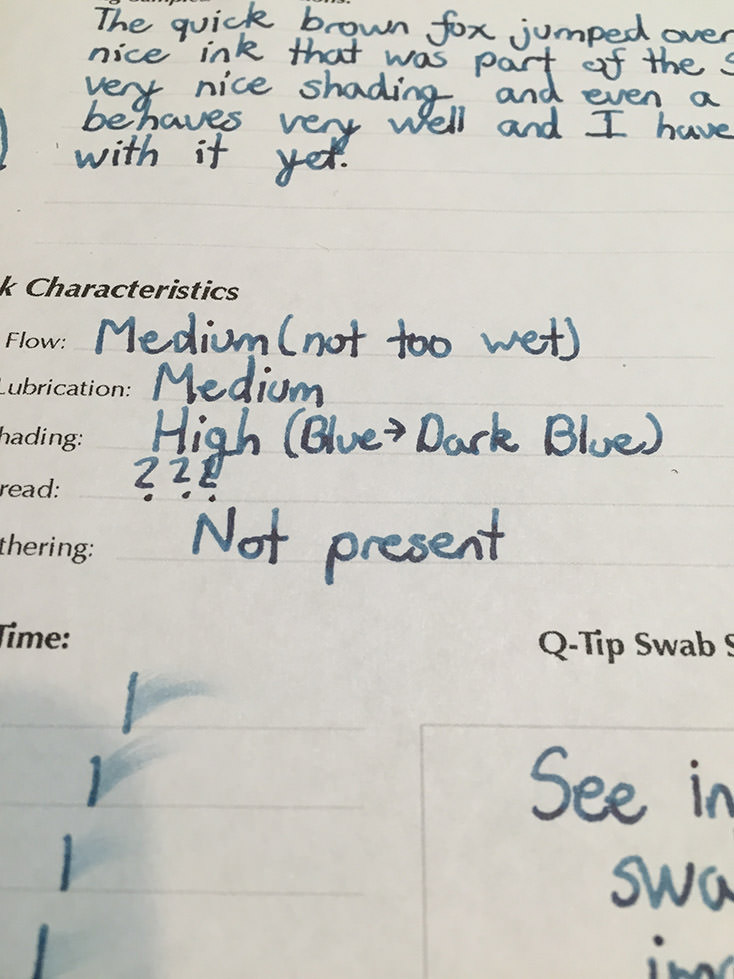 The quick brown fox jumped over
nice ink that was part of the S
very nice shading and even a
behaves very well and I have
with it yet.
k Characteristics
Flow: Medium (not too wet)
Lubrication: Medium
hading: High (Blue→Dark Blue)
read: ???
thering: Not present
Time:
Q-Tip Swab S
See in
swa